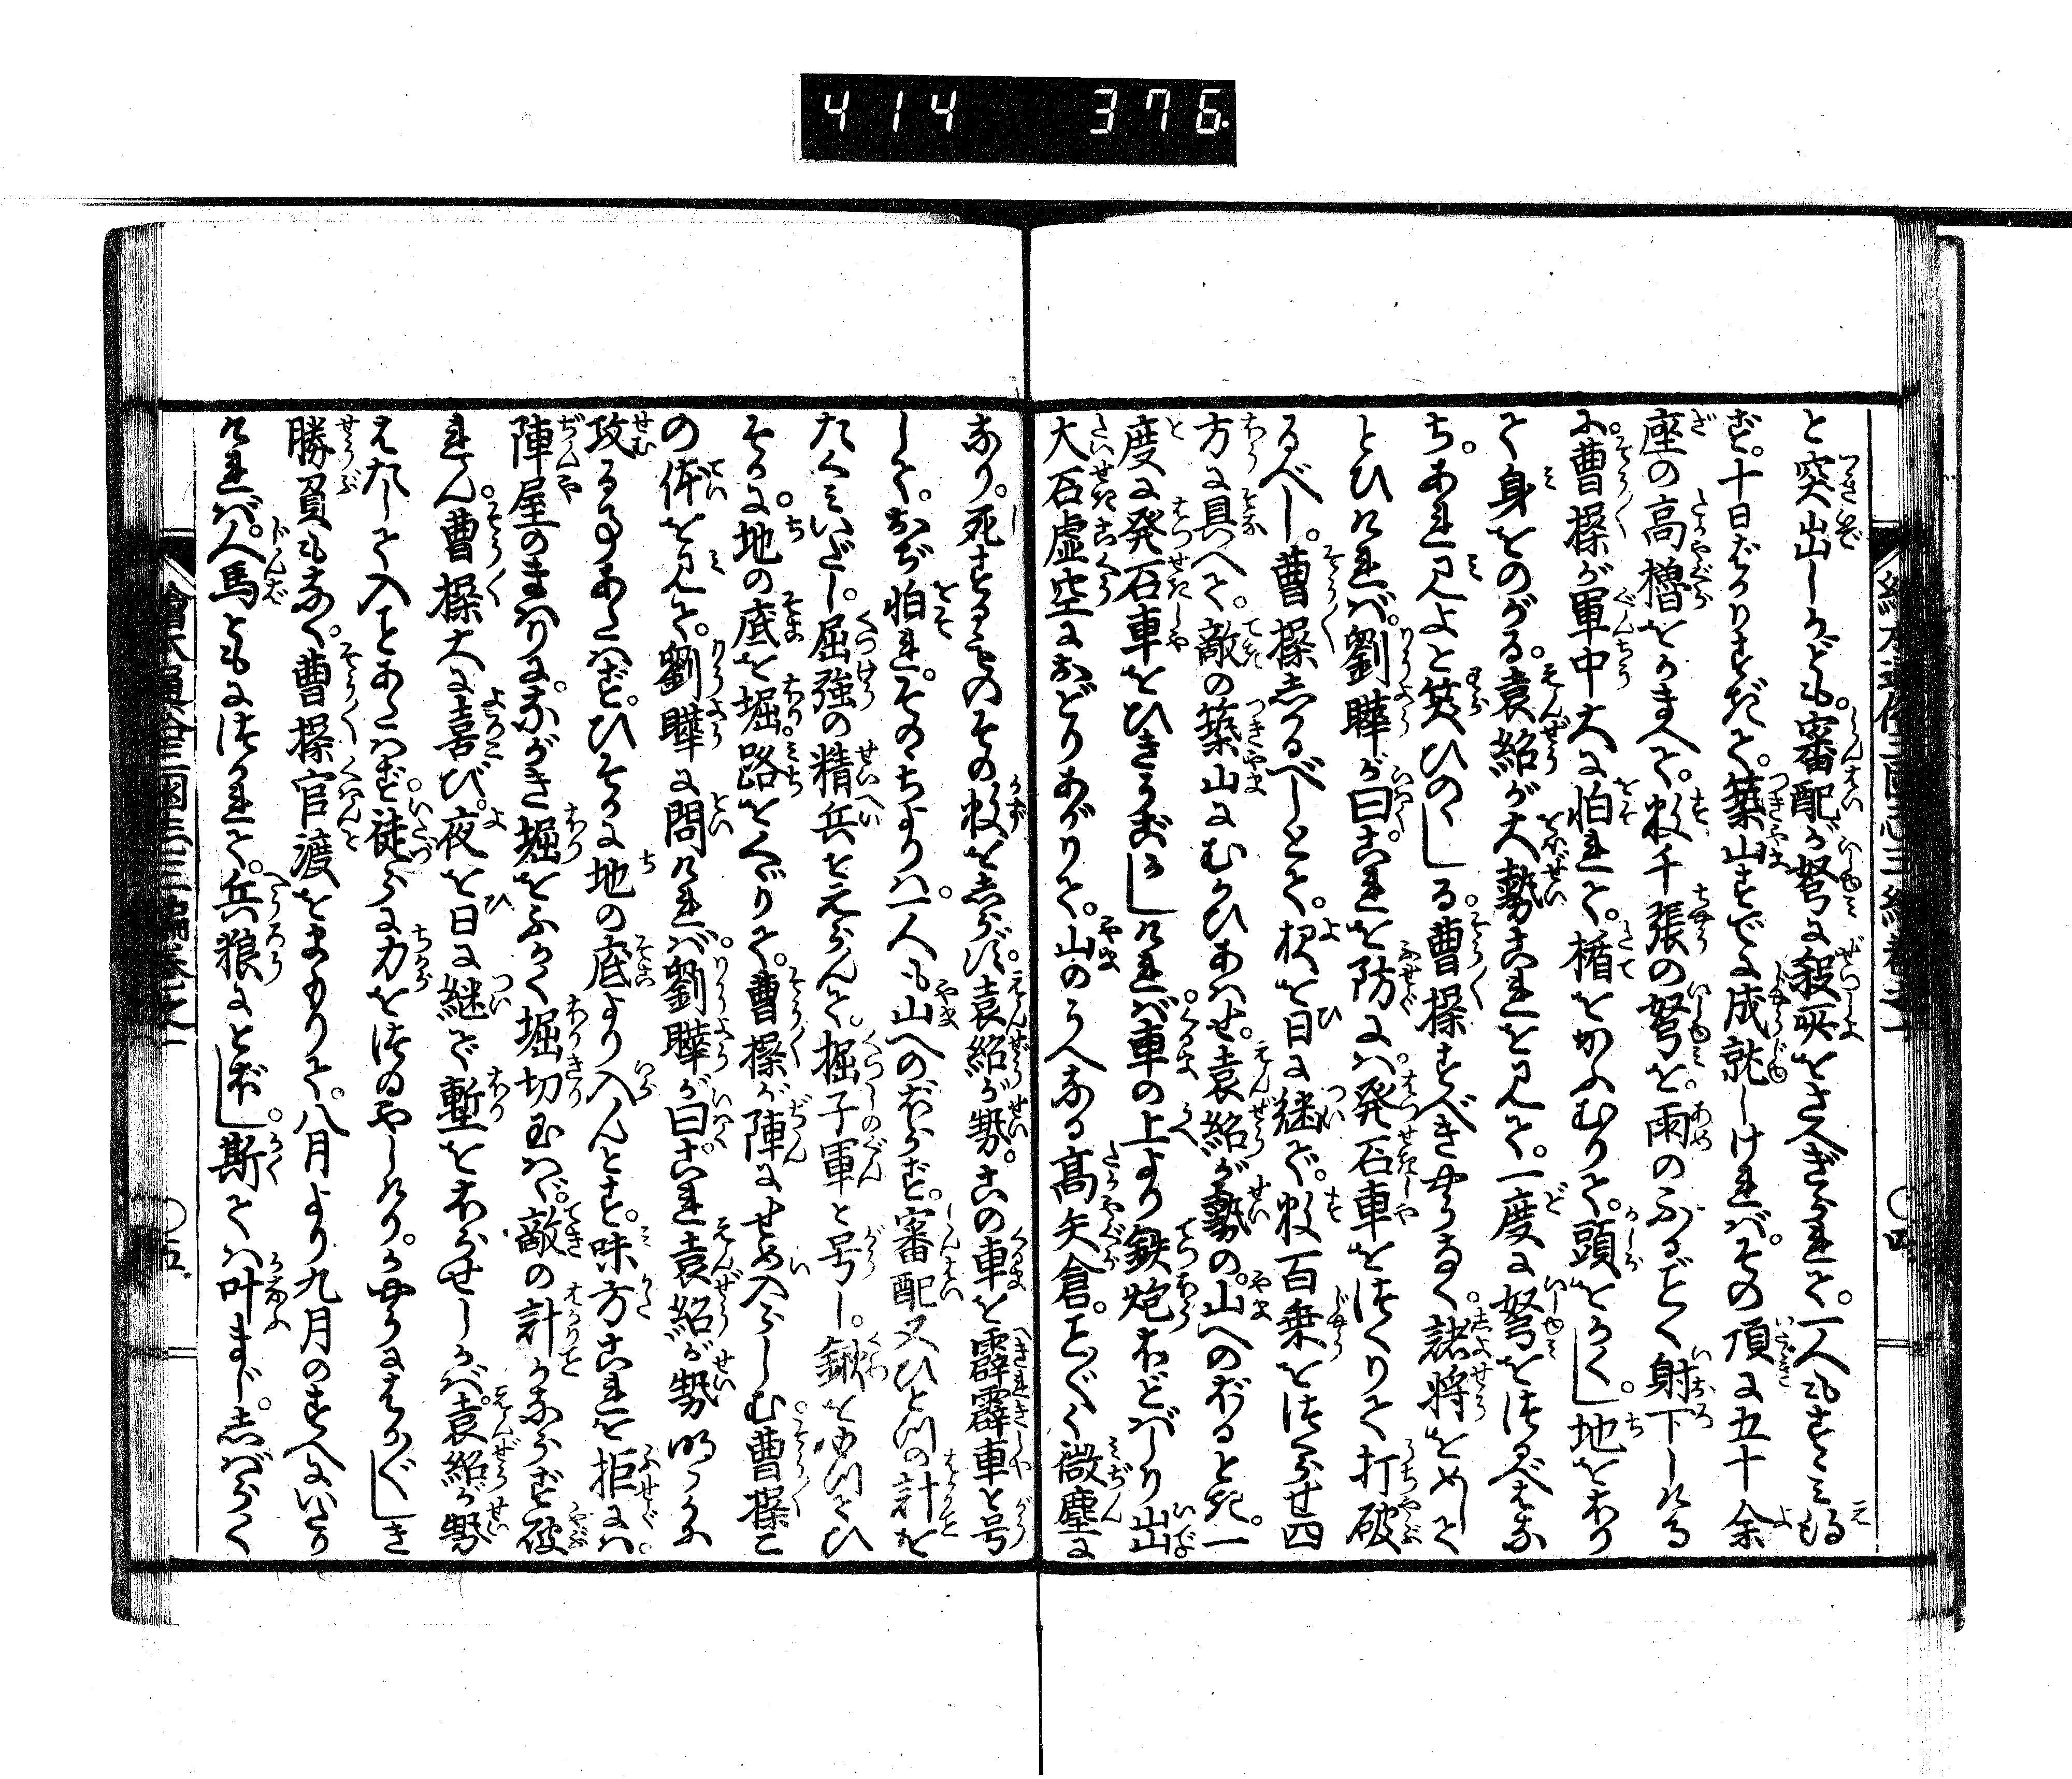 414 376
と突出しかども。審配が弩に殺所をさへぎられて。一人もすゝみ得
ず。十日ばかりすぎて。築山すでに成就しければ。その頂に五十余
座の高櫓をかまへて。数千張の弩を。雨のふるごとく射下しける
に。曹操が軍中大に怕れて。楯をかふむりて。頭をかくし。地をほり
て身をのがる。袁紹が大勢これを見て。一度に弩をはなち
ち。あれ見よと笑ひのゝしる。曹操すべきやうなく。諸将をめして
とひければ。劉曄が曰。これを防には。発石車をつくりて打破
るべし。曹操しかるべしとて。夜を日に継で。数百乗をつくらせ四
方に具へて。敵の築山にむかひあはせ。袁紹が勢の。山へのぼるとき。一
度に発石車をひきうごかしければ。車の上より鉄炮ほどばしり出。
大石虚空におどりあがりて。山のうへなる高矢倉。ことごとく微塵に
なり。死するものその数をしらず。袁紹が勢。この車を霹靂車と号
して。おぢ怕れ。そのゝちよりは。一人も山へのぼらず。審配又ひとつの計を
たくみいだし。屈強の精兵をえらんで。掘子軍と号し。鍬をゆつてひ
そかに。地の底を堀。路をくゞりて。曹操が陣にせめ入らしむ。曹操こ
の体を見て。劉曄に問ければ。劉曄が曰。これ袁紹が勢明らかに
攻る事あたはず。ひそかに地の底より入んとす。味方これを拒には。
陣屋のまはりに。ながき堀をふかく堀切玉はゞ。敵の計かならず破
れん。曹操大に喜び。夜を日に継で塹をほらせしかば。袁紹が勢
えたして入ことあたはず。徒らに力をつゐやしけり。かやうにはかしき
勝負もなく。曹操官渡をまもりて。八月より九月のすへにいたり
ければ。人馬ともにつかれて。兵粮にとぼし。斯ては叶まじ。しばらく